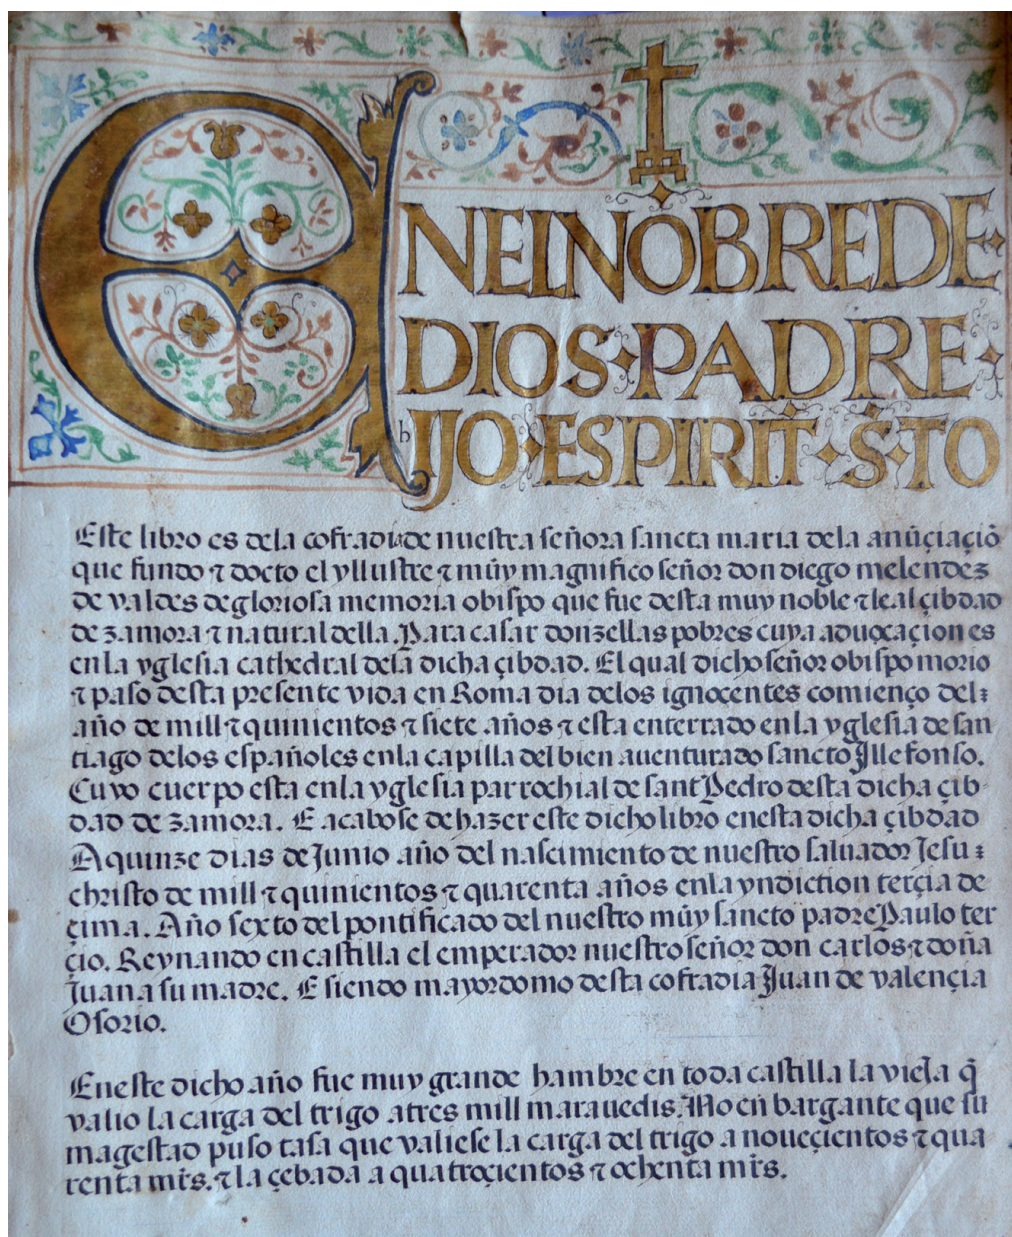 EN EL NŌBRE DE
DIOS·PADRE·
hIJO·ESPIRIT·S·TO
Este libro es dela cofradia de nuestra señora sancta maria dela anūçiaçiō
que fundo ⁊ docto el yllustre ⁊ mūy magnifico señor don diego melendez
de valdes de gloriosa memoria obispo que fue desta muy noble ⁊ leal çibdad
de zamora ⁊ natural della. Para casar donzellas pobres cuya aduocaçion es
enla yglesia cathedral dela dicha çibdad. El qual dicho señor obispo morio
⁊ paso desta presente vida en Roma dia delos ignocentes comienço del:
año de mill ⁊ quinientos ⁊ siete años ⁊ esta enterrado enla yglesia de san
tiago delos españoles enla capilla del bien auenturado sancto Illefonso.
Cuyo cuerpo esta enla yglesia parrochial de sant Pedro desta dicha çib-
dad de zamora. E acabose de hazer este dicho libro enesta dicha çibdad
A quinze dias de Junio año del nascimiento de nuestro saluador Jesu:
christo de mill ⁊ quinientos ⁊ quarenta años enla yndiction terçia de
çima. Año sexto del pontificado del nuestro mūy sancto padre Paulo ter
çio. Reynando en castilla el emperador nuestro señor don carlos ⁊ doña
Juana su madre. E siendo mayordomo desta cofradia Juan de valençia
Osorio.
Eneste dicho año fue muy grande hambre en toda castilla la vieja q̄
valio la carga del trigo a tres mill marauedis. No en bargante que su
magestad puso tasa que valiese la carga del trigo a noueçientos ⁊ qua
renta mr̄s. ⁊ la çebada a quatroçientos ⁊ ochenta mr̄s.